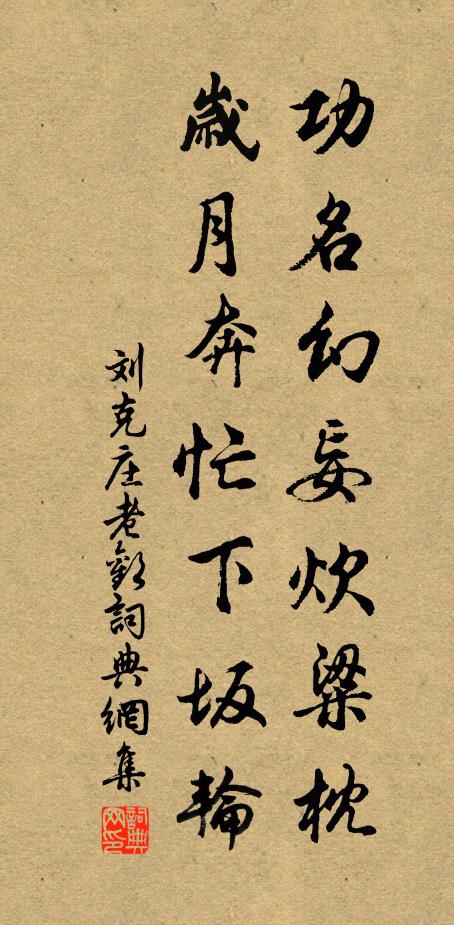 功名幻妄炊粱枕
歲月奔忙下坂輪
刘克庄老歎詞典網集
詞典网印